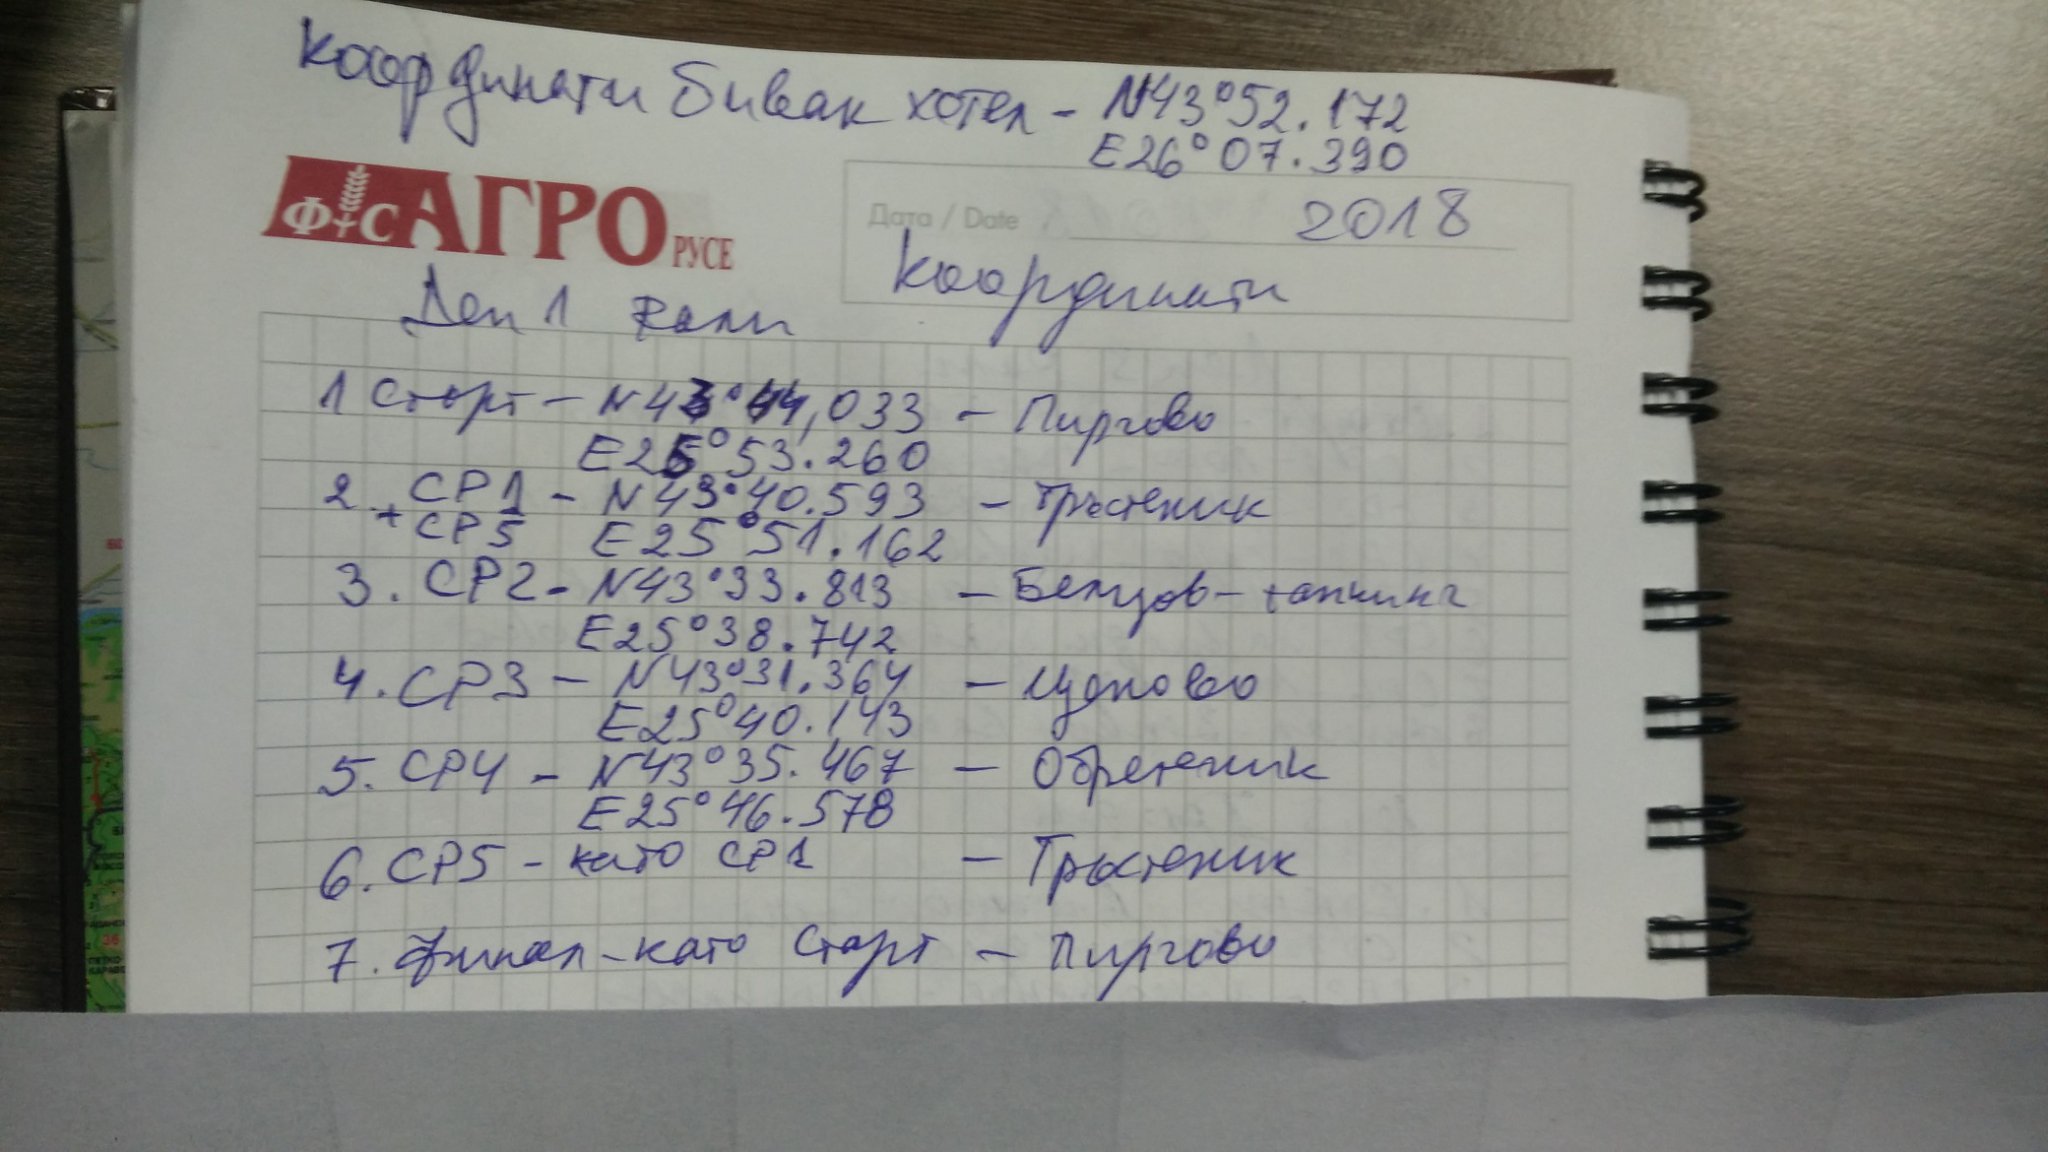 Координати бивак хотел - N43°52.172
E26°07.390
Ф С АГРО РУСЕ
Дата / Date 2018
Координати
Ден 1 Рали
1 Старт - N43°44,033 - Пиргово
E25°53.260
2. CP1 - N43°40.593 - Тръстеник
+ CP5 E25°51.162
3. CP2 - N43°33.813 - Белцов -
E25°38.742
4. CP3 - N43°31.364 - Ценово
E25°40.143
5. CP4 - N43°35.467 - Обретеник
E25°46.578
6. CP5 - като CP1 - Тръстеник
7. Финал - като Старт - Пиргово